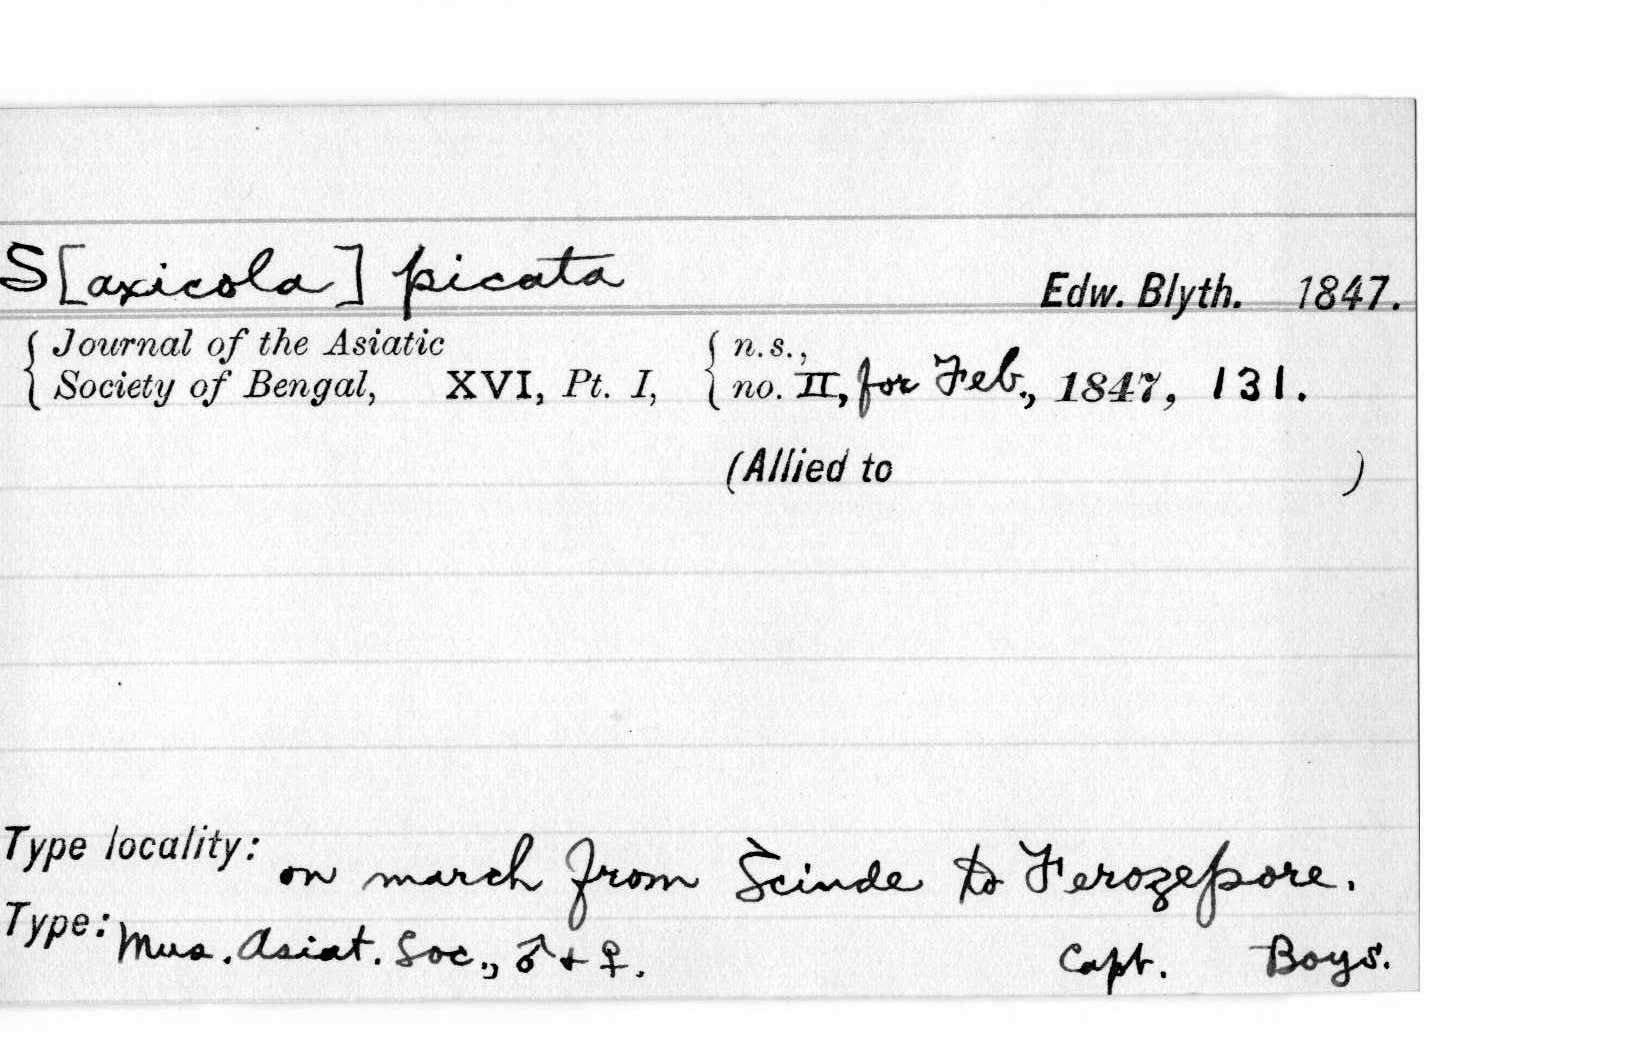 S[axicola] picata Edw. Blyth. 1847.
Journal of the Asiatic n.s.,
Society of Bengal, XVI, Pt. I, no. II, for Feb., 1847, 131.
(Allied to )
Type locality: on march from Scinde to Ferozepore.
Type: Mus. Asiat. Soc., ♂ + ♀. Capt. Boys.